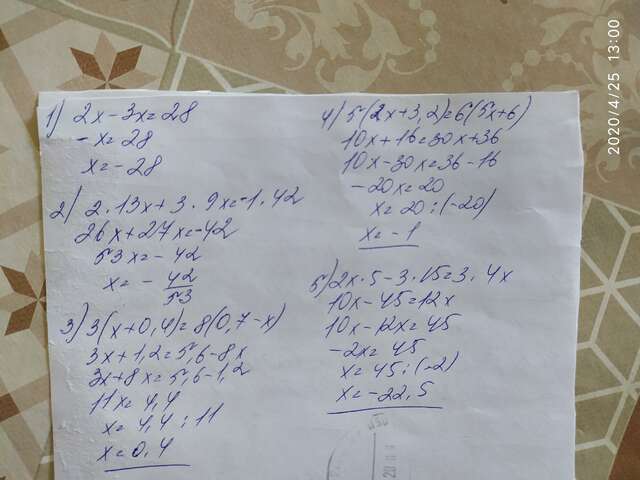 1) 2x-3x=28
-x=28
x=-28
2) 2·13x+3·9x=-1·42
26x+27x=-42
53x=-42
x=-42/53
3) 3(x+0,4)=8(0,7-x)
3x+1,2=5,6-8x
3x+8x=5,6-1,2
11x=4,4
x=4,4:11
x=0,4
4) 5(2x+3,2)=6(5x+6)
10x+16=30x+36
10x-30x=36-16
-20x=20
x=20:(-20)
x=-1
5) 2x·5-3·15=3·4x
10x-45=12x
10x-12x=45
-2x=45
x=45:(-2)
x=-22,5
2020/4/25 13:00